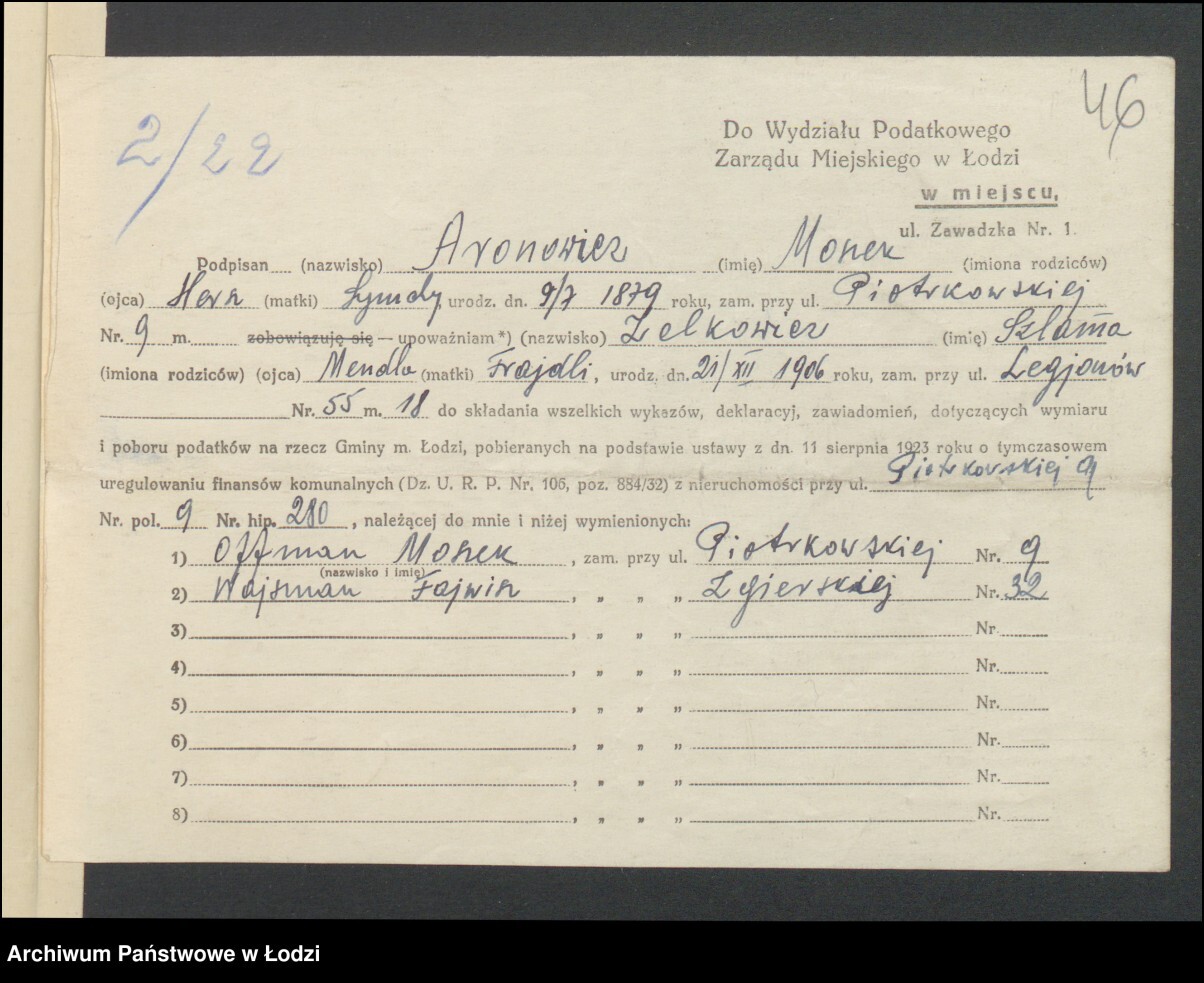 2/22
46
Do Wydziału Podatkowego
Zarządu Miejskiego w Łodzi
w miejscu,
ul. Zawadzka Nr. 1.
Podpisan (nazwisko) Aronowicz (imię) Mosek (imiona rodziców)
(ojca) Hersz (matki) urodz. dn. 9/7 1879 roku, zam. przy ul. Piotrkowskiej
Nr. 9 m. zobowiązuję się — upoważniam *) (nazwisko) Zelkowicz (imię) Szlama
(imiona rodziców) (ojca) Mendla (matki) Frajdli, urodz. dn. 21/XII 1906 roku, zam. przy ul. Legjonów
Nr. 55 m. 18 do składania wszelkich wykazów, deklaracyj, zawiadomień, dotyczących wymiaru
i poboru podatków na rzecz Gminy m. Łodzi, pobieranych na podstawie ustawy z dn. 11 sierpnia 1923 roku o tymczasowem
uregulowaniu finansów komunalnych (Dz. U. R. P. Nr. 106, poz. 884/32) z nieruchomości przy ul. Piotrkowskiej 9
Nr. pol. 9 Nr. hip. 280, należącej do mnie i niżej wymienionych:
1) Offman Mosek, zam. przy ul. Piotrkowskiej Nr. 9
(nazwisko i imię)
2) Wajsman Fajwisz, „ „ „ Zgierskiej Nr. 32
3) , „ „ „ Nr.
4) , „ „ „ Nr.
5) , „ „ „ Nr.
6) , „ „ „ Nr.
7) , „ „ „ Nr.
8) , „ „ „ Nr.
Archiwum Państwowe w Łodzi